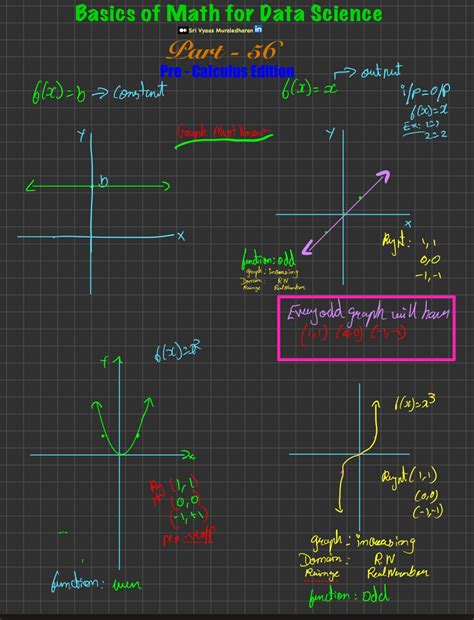 Basics of Math for Data Science
Sri Vyaas Muraledharan in
Part - 56
Pre - Calculus Edition
f(x)=b → constant
f(x)=x → output
i/p=o/p
f(x)=x
Ex: 1=1
2=2
Graph Must Know
y
b
x
y
x
Right: 1,1
0,0
-1,-1
function: odd
graph: increasing
Domain: RN
Range Real Number
Every odd graph will have
(1,1) (0,0) (-1,-1)
f(x)=x²
x
(1,1)
(0,0)
(-1,+1)
function: even
f(x)=x³
Right (1,1)
(0,0)
(-1,-1)
graph: increasing
Domain: RN
Range Real Number
function: Odd